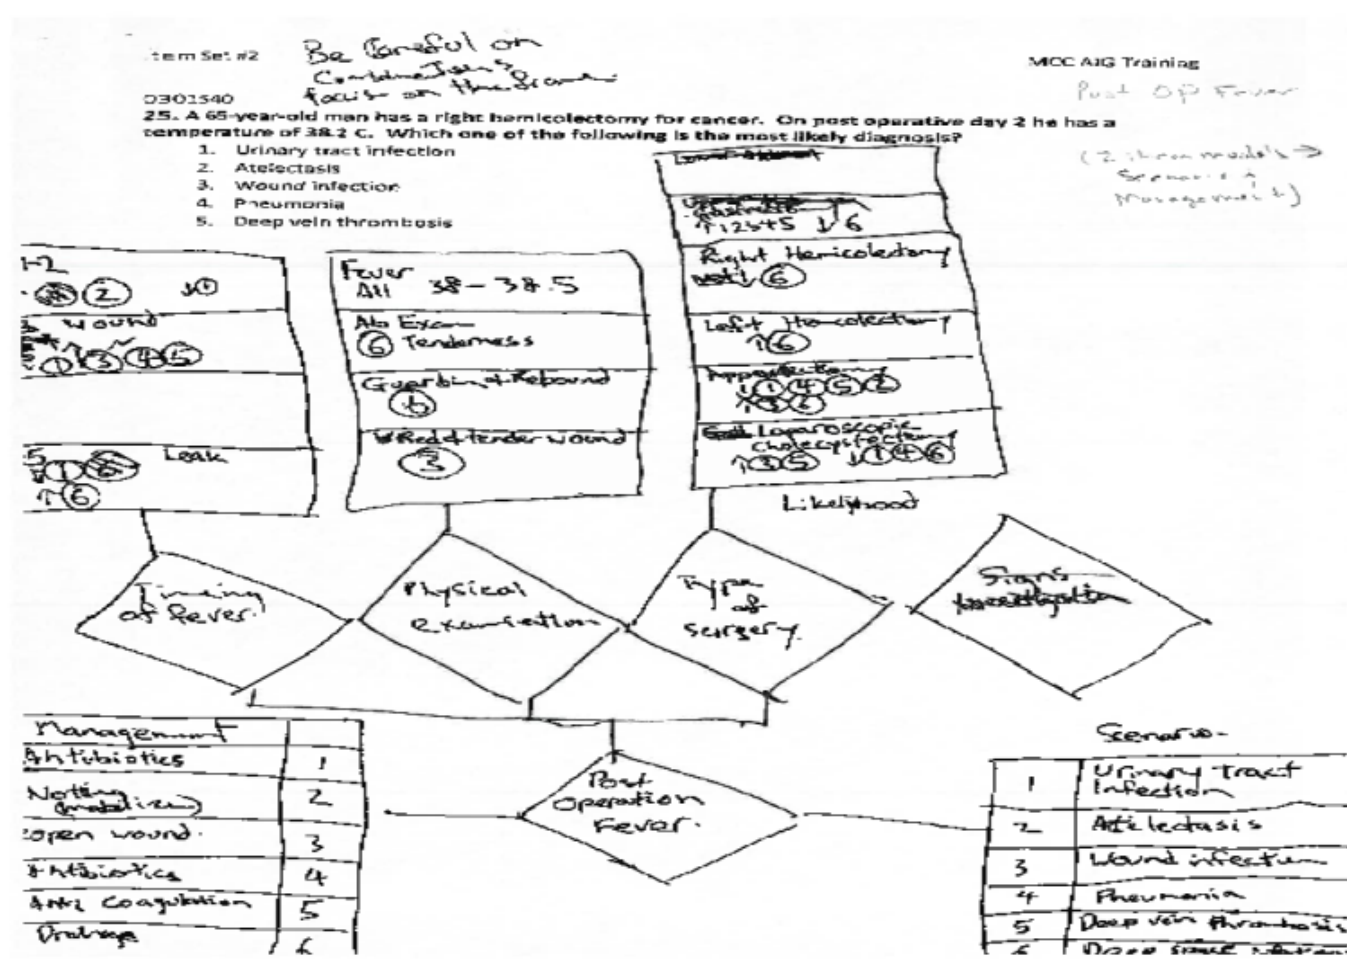 Item Set #2
Be Careful on
Combinations
focus on the
MCC AIG Training
Post Op Fever
0301540
25. A 65-year-old man has a right hemicolectomy for cancer. On post operative day 2 he has a
temperature of 38.2 C. Which one of the following is the most likely diagnosis?
1. Urinary tract infection
2. Atelectasis
3. Wound infection
4. Pneumonia
5. Deep vein thrombosis
Management)
1-2
2
wound
1 3 4 5
5 Leak
1 6
↑ 6
Fever
All 38 - 38.5
Ab Exam
6 Tenderness
Guarding + Rebound
6
Red & tender wound
3
↑ 1 2 3 4 5 ↓ 6
Right Hemicolectomy
↓ 6
Left Hemicolectomy
↑ 6
Appendectomy
↓ 1 4 5 2
↑ 3 6
Laparoscopic
Cholecystectomy
↑ 3 5 ↓ 1 4 6
Likelyhood
Timing
of fever
Physical
examination
Type
of
surgery
Signs
Investigation
Management
Antibiotics 1
Nothing
(mobilize) 2
open wound 3
Antibiotics 4
Anti Coagulation 5
Drainage 6
Post
Operation
Fever.
Scenario
1 Urinary tract
Infection
2 Atelectasis
3 Wound infection
4 Pneumonia
5 Deep vein thrombosis
6 Deep space